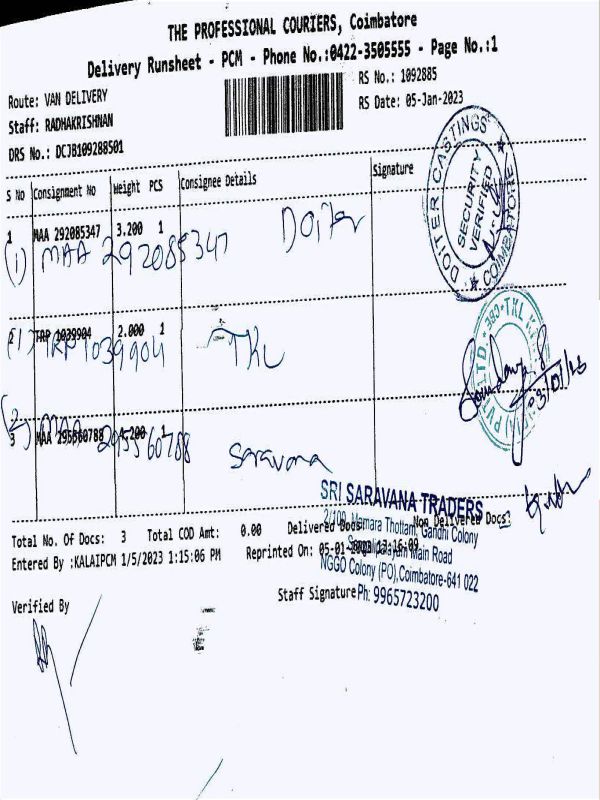 THE PROFESSIONAL COURIERS, Coimbatore
Delivery Runsheet - PCM - Phone No.:0422-3505555 - Page No.:1
Route: VAN DELIVERY
RS No.: 1092885
Staff: RADHAKRISHNAN
RS Date: 05-Jan-2023
DRS No.: DCJB109288501
S No Consignment No Weight PCS Consignee Details Signature
1 MAA 292085347 3.200 1
(1) MAA 292085347 Doiter
DOITER CASTINGS
SECURITY
VERIFIED
COIMBATORE
2 TRP 1039904 2.000 1
TRP 1039904 TKL
3 MAA 295560788 1
MAA 295560788 Saravana
SRI SARAVANA TRADERS
Gandhi Colony
Main Road
NGGO Colony (PO), Coimbatore-641 022
Ph: 9965723200
Total No. Of Docs: 3 Total COD Amt: 0.00 Delivered Docs: Non Delivered Docs:
Entered By :KALAIPCM 1/5/2023 1:15:06 PM Reprinted On: 05-01-2023 13:16:09
Verified By
Staff Signature